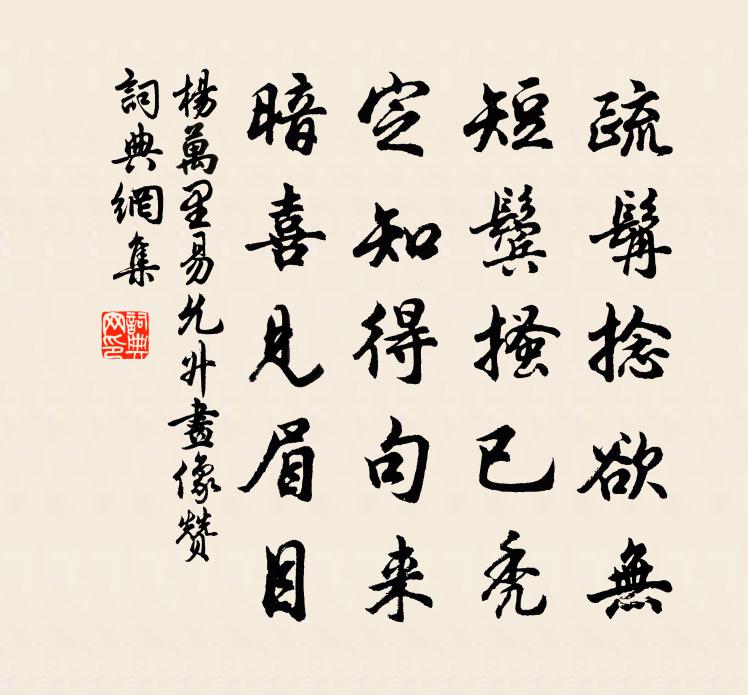 疏髯捻欲無
短鬢搔已禿
定知得句来
暗喜見眉目
楊萬里易允升畫像贊
詞典網集
詞典网印